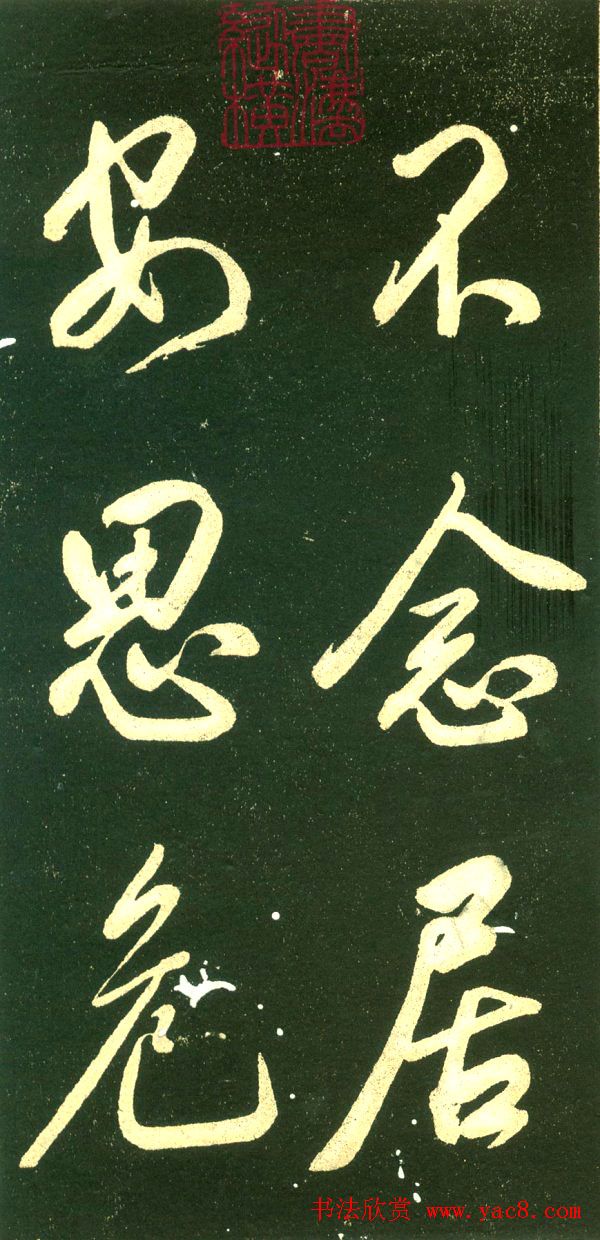 不念居
安思危
书法欣赏 www.yac8.com